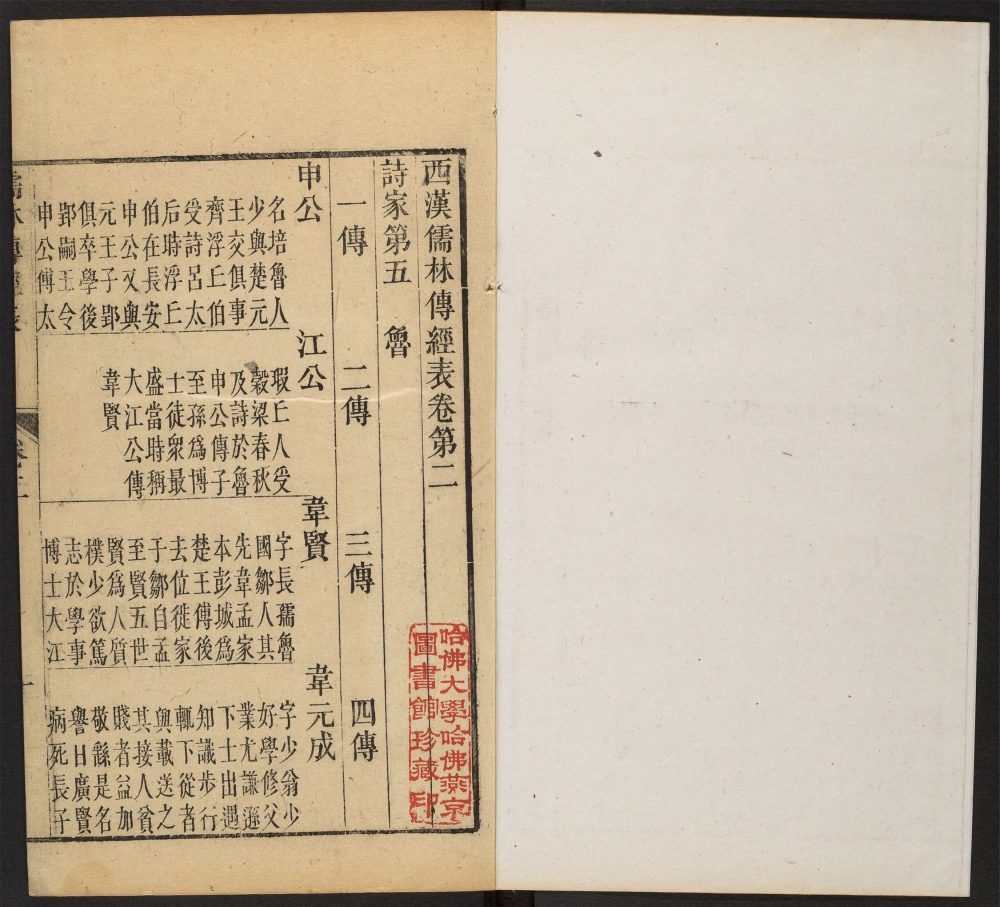 西漢儒林傳經表卷第二
詩家第五 魯
一傳 二傳 三傳 四傳
申公
名培魯人
少與楚元
王交俱事
齊浮丘伯
受詩呂太
后時浮丘
伯在長安
申公又與
元王子郢
俱卒學後
郢嗣王令
申公傅太
江公
瑕丘人受
穀梁春秋
及詩於魯
申公傳子
至孫爲博
士徒衆最
盛當時稱
大江公傳
韋賢
韋賢
字長孺魯
國鄒人其
先韋孟家
本彭城爲
楚王傅後
去位徙家
于鄒自孟
至賢五世
賢爲人質
樸少欲篤
志於學事
博士大江
韋元成
字少翁少
好學修父
業尤謙遜
下士出遇
知識步行
輒下從者
與載送之
其接人貧
賤者益加
敬繇是名
譽日廣賢
病死長子
儒林傳經表 卷二 一
哈佛大學哈佛燕京
圖書館珍藏印